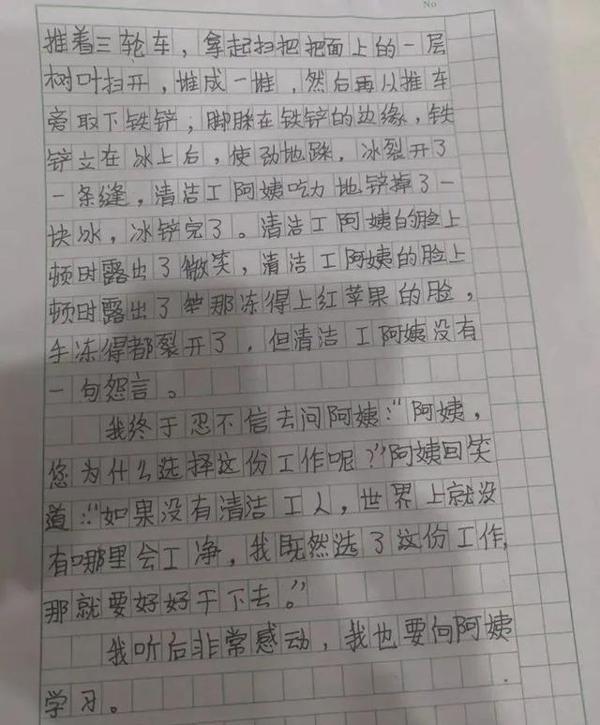 No
推着三轮车，拿起扫把把面上的一层
树叶扫开，堆成一堆，然后再从推车
旁取下铁铲；脚踩在铁铲的边缘，铁
铲立在冰上后，使劲地踩，冰裂开了
一条缝，清洁工阿姨吃力地铲掉了一
块冰，冰铲完了。清洁工阿姨的脸上
顿时露出了微笑，清洁工阿姨的脸上
顿时露出了那冻得上红苹果的脸，
手冻得都裂开了，但清洁工阿姨没有
一句怨言。
我终于忍不信去问阿姨：“阿姨，
您为什么选择这份工作呢？”阿姨回笑
道：“如果没有清洁工人，世界上就没
有哪里会工净，我既然选了这份工作，
那就要好好干下去。”
我听后非常感动，我也要向阿姨
学习。